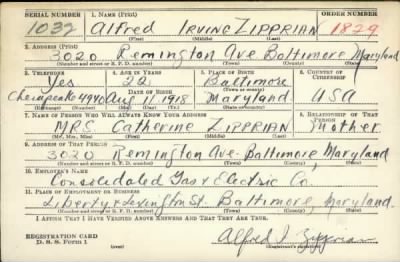 SERIAL NUMBER 1. NAME (Print) ORDER NUMBER
1032 Alfred IRVING ZIPPRIAN 1829
(First) (Middle) (Last)
2. ADDRESS (Print)
3020 Remington Ave Baltimore Maryland
(Number and street or R. F. D. number) (Town) (County) (State)
3. TELEPHONE 4. AGE IN YEARS 5. PLACE OF BIRTH 6. COUNTRY OF CITIZENSHIP
Yes 22 Baltimore
DATE OF BIRTH (Town or county)
Chesapeake Aug 11 1918 Maryland USA
(Exchange) (Number) (Mo.) (Day) (Yr.) (State or country)
7. NAME OF PERSON WHO WILL ALWAYS KNOW YOUR ADDRESS 8. RELATIONSHIP OF THAT PERSON
MRS. Catherine ZIPPRIAN Mother
(Mr., Mrs., Miss) (First) (Middle) (Last)
9. ADDRESS OF THAT PERSON
3020 Remington Ave Baltimore, Maryland
(Number and street or R. F. D. number) (Town) (County) (State)
10. EMPLOYER'S NAME
Consolidated Gas & Electric Co
11. PLACE OF EMPLOYMENT OR BUSINESS
Liberty & Lexington St. Baltimore, Maryland.
(Number and street or R. F. D. number) (Town) (County) (State)
I AFFIRM THAT I HAVE VERIFIED ABOVE ANSWERS AND THAT THEY ARE TRUE.
REGISTRATION CARD
D. S. S. Form 1 Alfred I. Zipprian
(Registrant's signature)